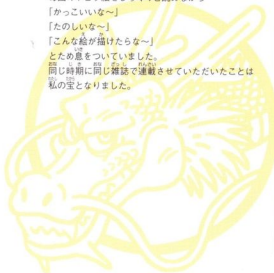 「かっこいいな～」
「たのしいな～」
「こんな絵が描けたらな～」
とため息をついていました。
同じ時期に同じ雑誌で連載させていただいたことは
私の宝となりました。